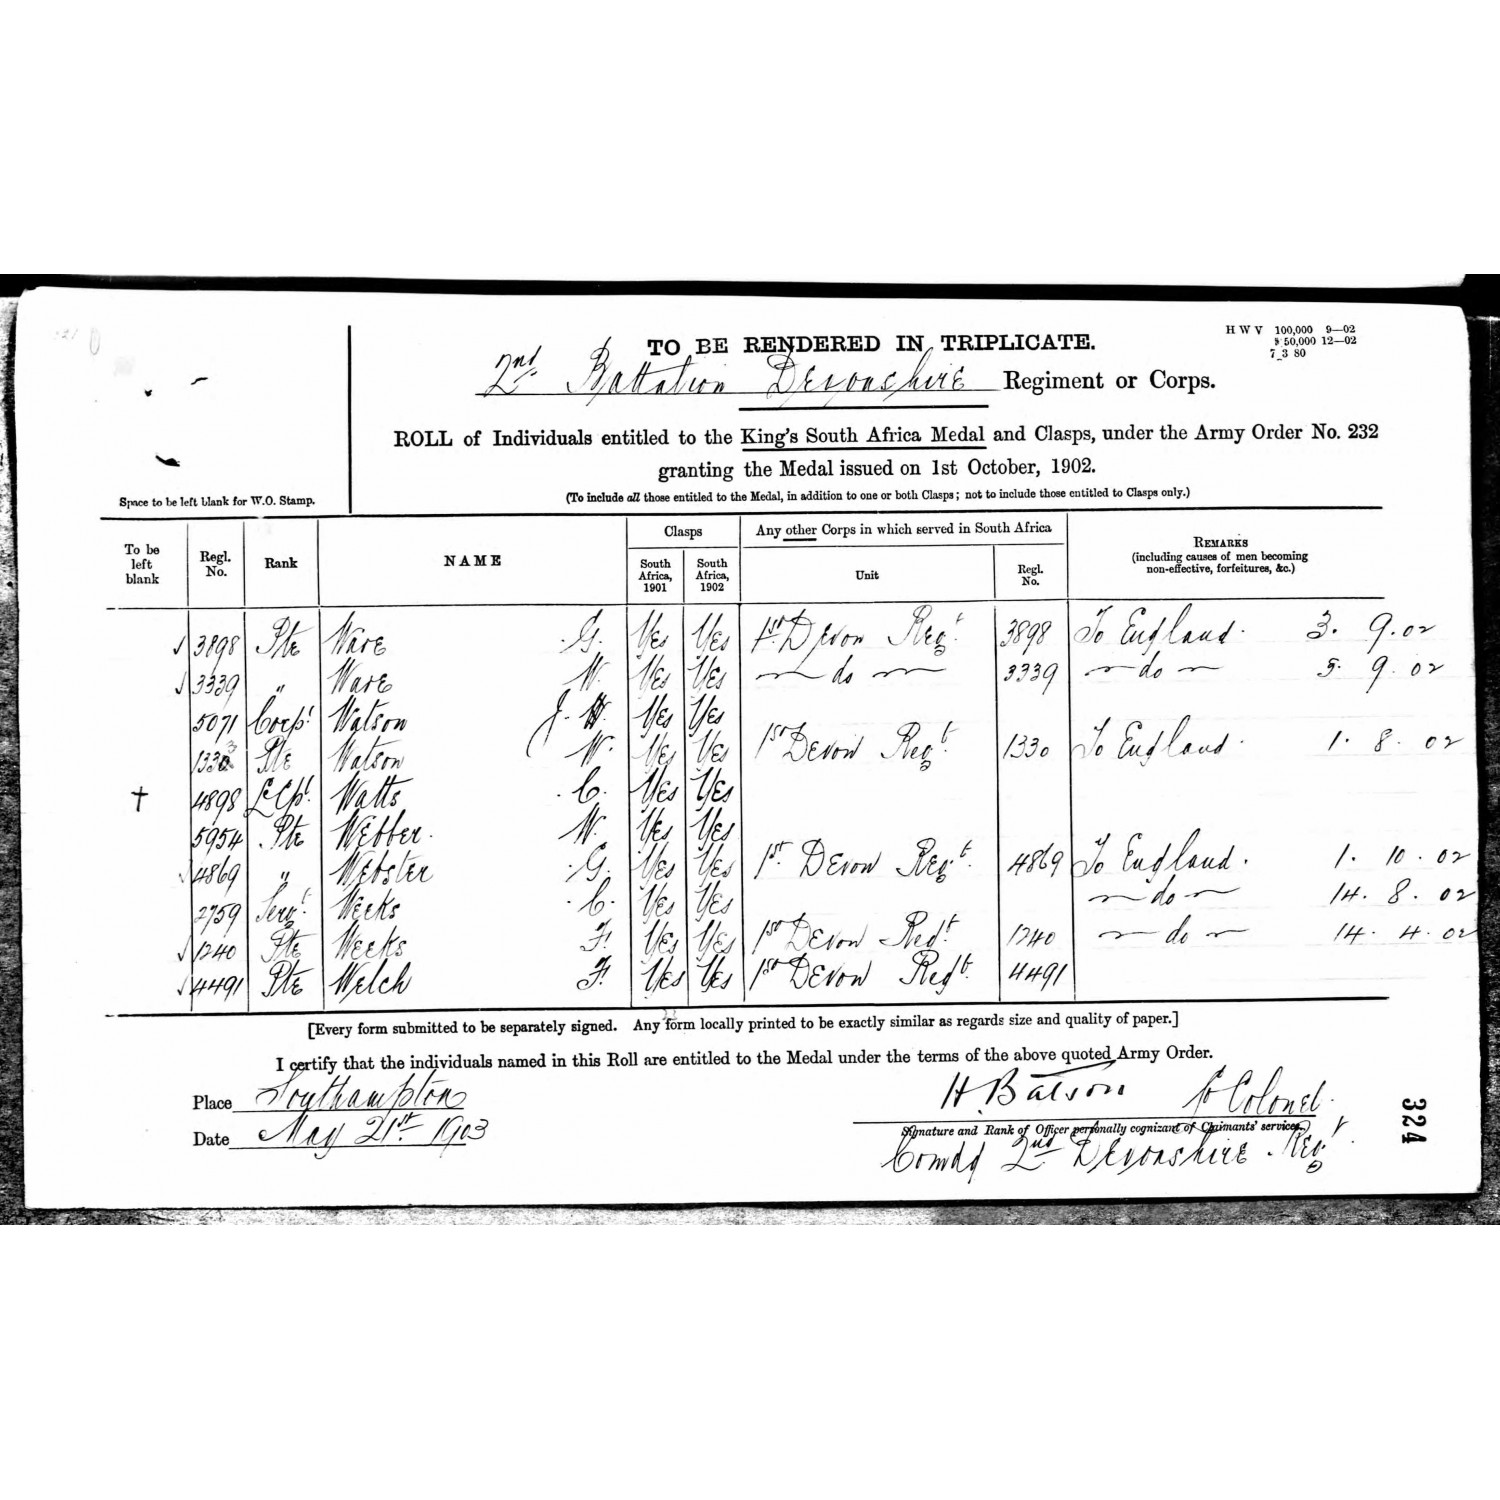 H W V 100,000 9—02
50,000 12—02
7_3 80
TO BE RENDERED IN TRIPLICATE.
2nd Battalion Devonshire Regiment or Corps.
ROLL of Individuals entitled to the King's South Africa Medal and Clasps, under the Army Order No. 232
granting the Medal issued on 1st October, 1902.
(To include all those entitled to the Medal, in addition to one or both Clasps; not to include those entitled to Clasps only.)
Space to be left blank for W.O. Stamp.
To be left blank Regl. No. Rank NAME Clasps South Africa, 1901 South Africa, 1902 Any other Corps in which served in South Africa Unit Regl. No. REMARKS (including causes of men becoming non-effective, forfeitures, &c.)
✓ 3898 Pte Ware G. Yes Yes 1st Devon Regt. 3898 To England. 3. 9. 02
✓ 3339 " Ware W. Yes Yes — do — 3339 — do — 5. 9. 02
5071 Corpl Watson J. H. Yes Yes
1330 Pte Watson W. Yes Yes 1st Devon Regt. 1330 To England. 1. 8. 02
† 4898 L Cpl. Watts C. Yes Yes
5954 Pte Webber. W. Yes Yes
✓ 4869 " Webster G. Yes Yes 1st. Devon Regt. 4869 To England. 1. 10. 02
2759 Sergt. Weeks C. Yes Yes — do — 14. 8. 02
✓ 1240 Pte Weeks F. Yes Yes 1st Devon Regt. 1240 — do — 14. 4. 02
✓ 4491 Pte Welch F. Yes Yes 1st Devon Regt. 4491
[Every form submitted to be separately signed. Any form locally printed to be exactly similar as regards size and quality of paper.]
I certify that the individuals named in this Roll are entitled to the Medal under the terms of the above quoted Army Order.
Place Southampton
H. Batson Colonel.
Signature and Rank of Officer personally cognizant of Claimants' services.)
Date May 21st. 1903
Comdg 2nd Devonshire Regt
324